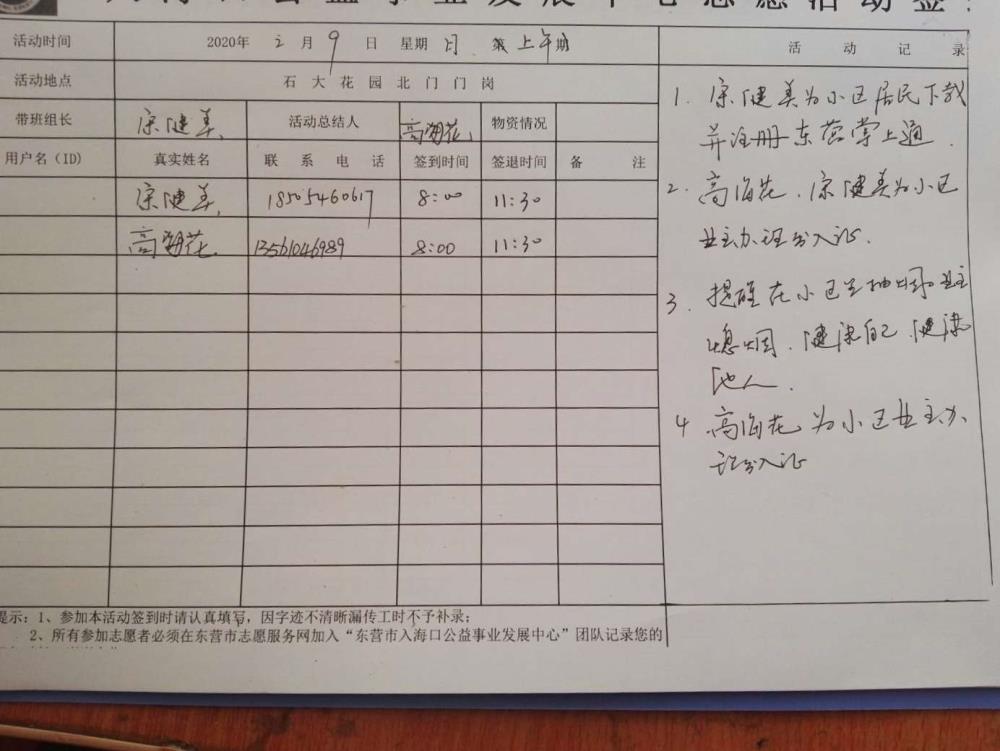 公益事业发展中心志愿活动签
活动时间 2020年 2 月 9 日 星期 日 第 上午 期
活动地点 石大花园北门门岗
带班组长 宗健美 活动总结人 高海花 物资情况
用户名(ID) 真实姓名 联系电话 签到时间 签退时间 备注
宗健美 18505460617 8:00 11:30
高海花 13561046989 8:00 11:30
活动记录
1. 宗健美为小区居民下载
并注册东营掌上通.
2. 高海花、宗健美为小区
业主办理出入证.
3. 提醒在小区里抽烟业主
熄烟、健康自己、健康
他人.
4 高海花为小区业主办
理出入证
提示:1、参加本活动签到时请认真填写,因字迹不清晰漏传工时不予补录;
2、所有参加志愿者必须在东营市志愿服务网加入“东营市入海口公益事业发展中心”团队记录您的